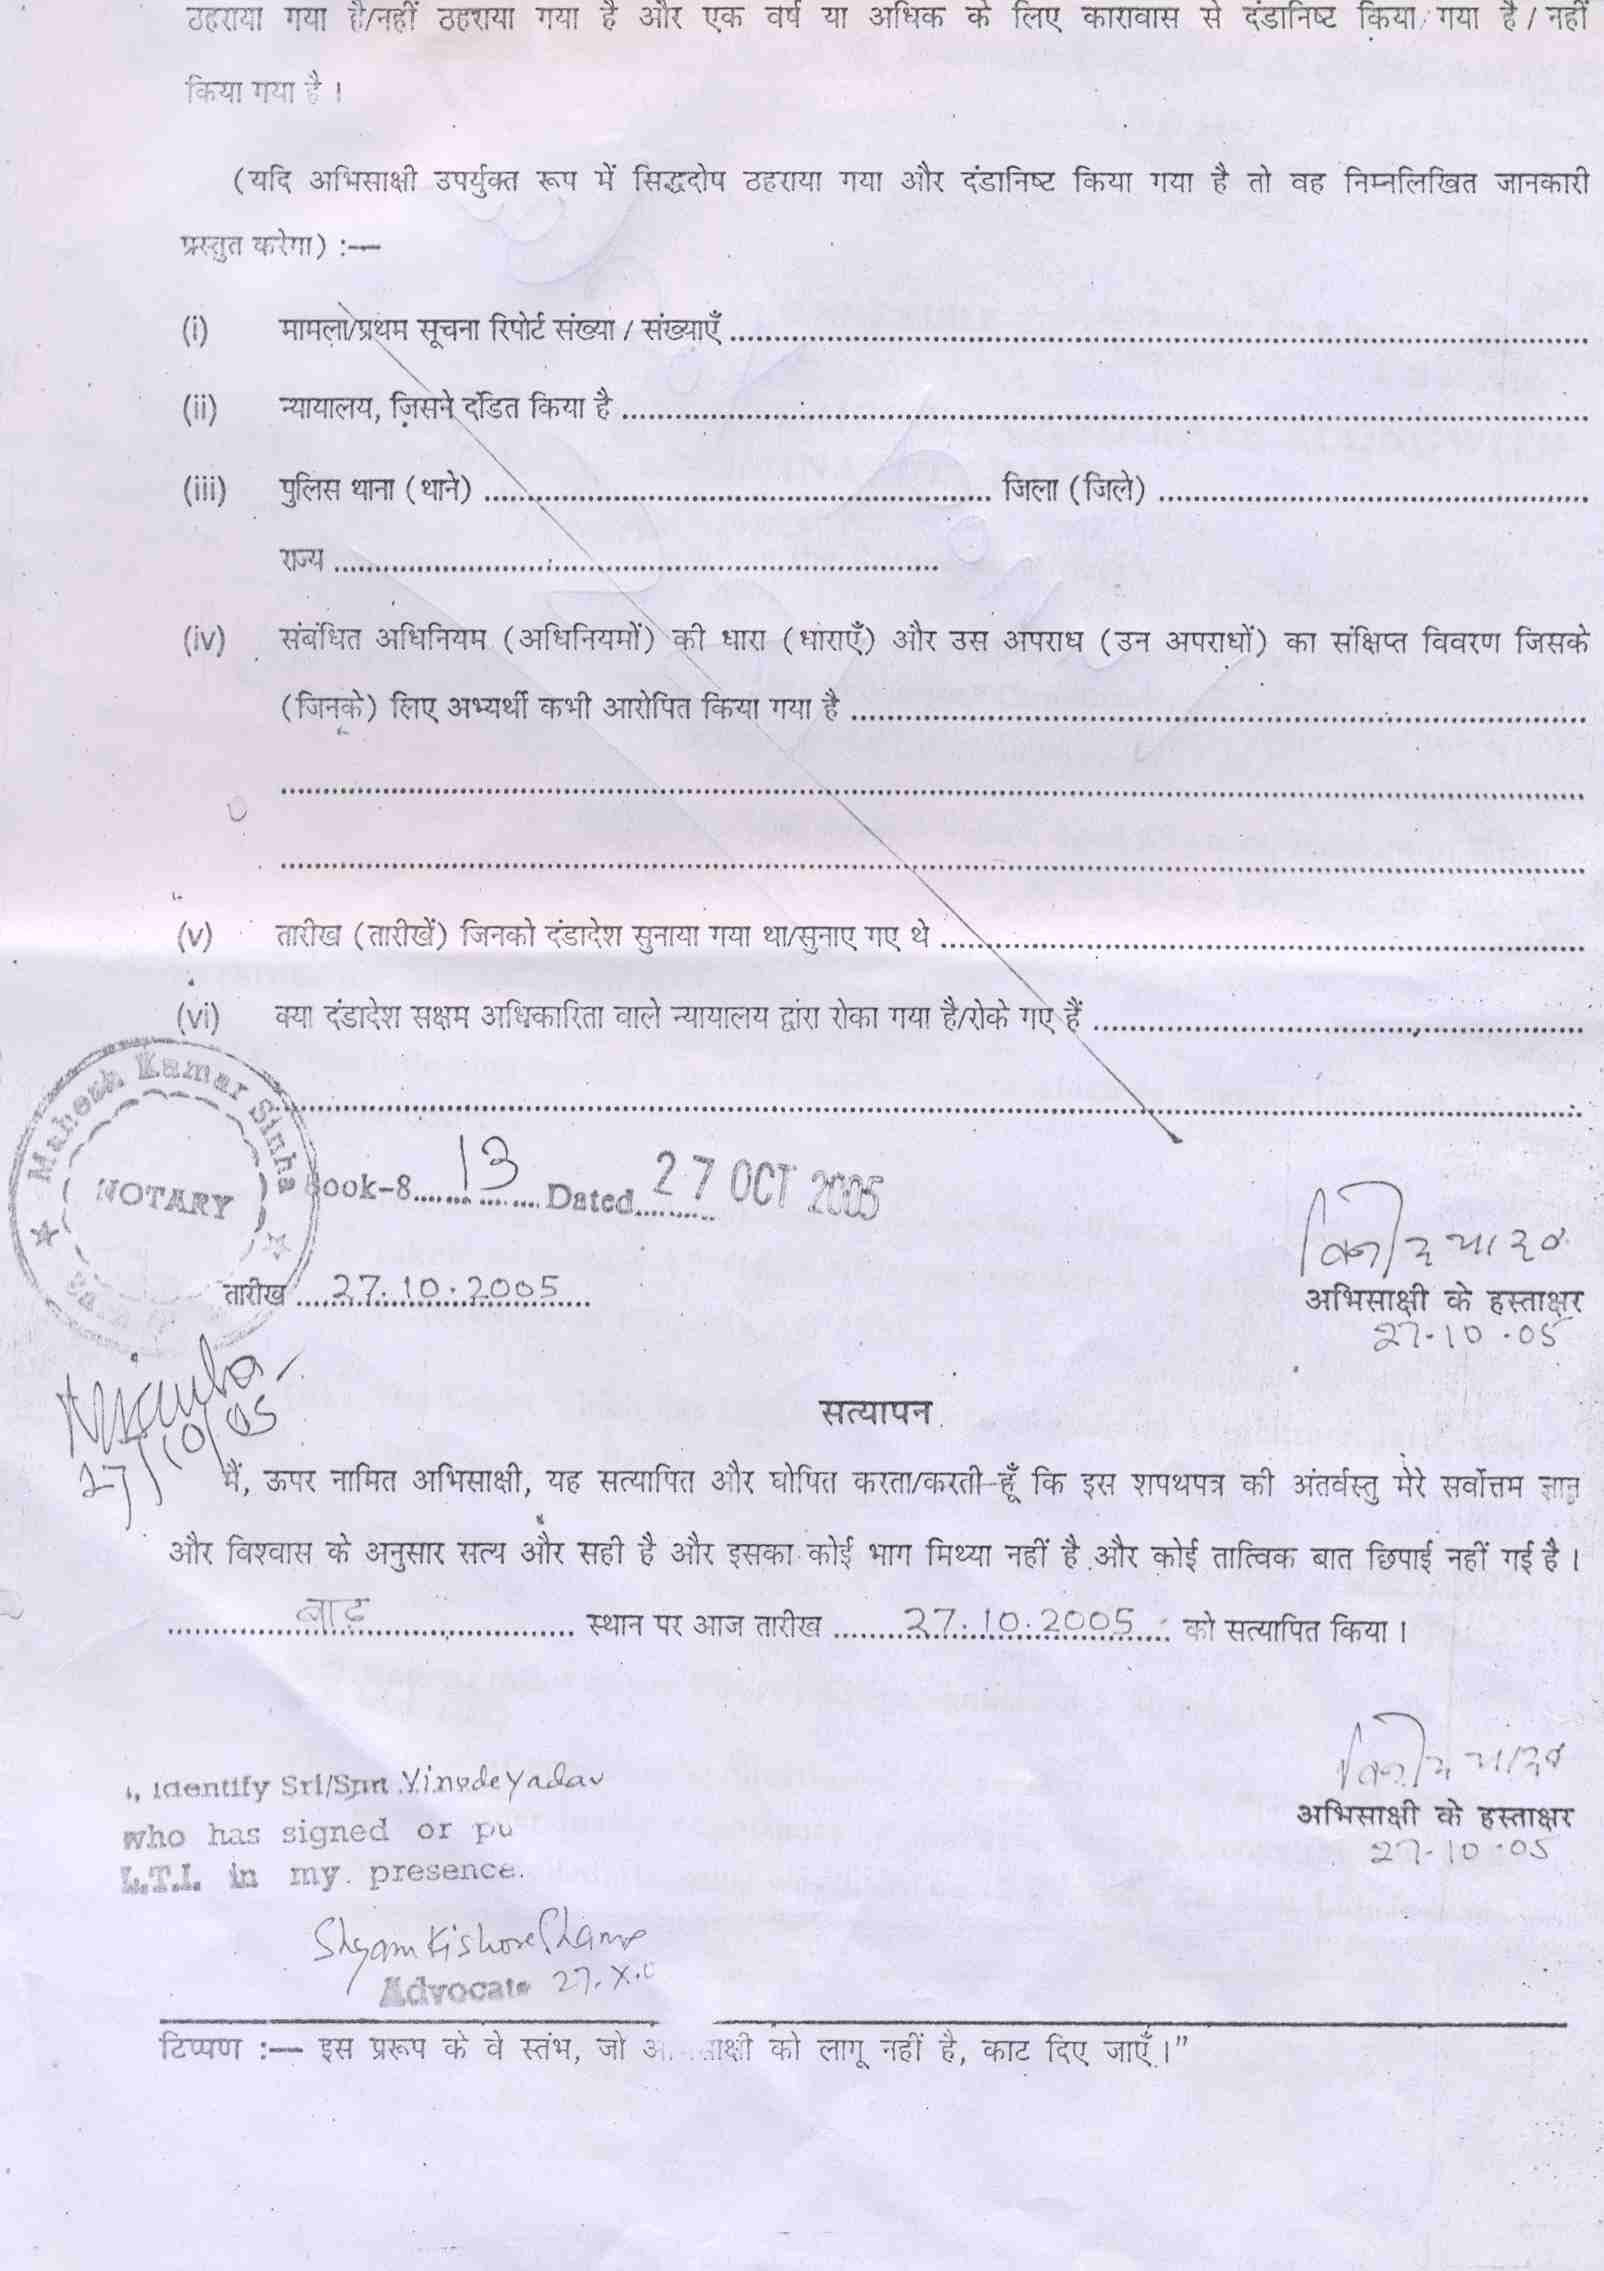 ठहराया गया है/नहीं ठहराया गया है और एक वर्ष या अधिक के लिए कारावास से दंडानिष्ट किया गया है / नहीं
किया गया है ।
(यदि अभिसाक्षी उपर्युक्त रूप में सिद्धदोष ठहराया गया और दंडानिष्ट किया गया है तो वह निम्नलिखित जानकारी
प्रस्तुत करेगा) :—
(i) मामला/प्रथम सूचना रिपोर्ट संख्या / संख्याएँ ....................
(ii) न्यायालय, जिसने दंडित किया है ....................
(iii) पुलिस थाना (थाने) .................... जिला (जिले) ....................
राज्य ....................
(iv) संबंधित अधिनियम (अधिनियमों) की धारा (धाराएँ) और उस अपराध (उन अपराधों) का संक्षिप्त विवरण जिसके
(जिनके) लिए अभ्यर्थी कभी आरोपित किया गया है ....................
(v) तारीख (तारीखें) जिनको दंडादेश सुनाया गया था/सुनाए गए थे ....................
(vi) क्या दंडादेश सक्षम अधिकारिता वाले न्यायालय द्वारा रोका गया है/रोके गए हैं ....................
Mahesh Kamar Sinha
NOTARY
Book-8 ...... 13 ...... Dated ...... 27 OCT 2005
तारीख ...... 27.10.2005 ......
अभिसाक्षी के हस्ताक्षर
27-10-05
27/10/05
सत्यापन
मैं, ऊपर नामित अभिसाक्षी, यह सत्यापित और घोषित करता/करती हूँ कि इस शपथपत्र की अंतर्वस्तु मेरे सर्वोत्तम ज्ञान
और विश्वास के अनुसार सत्य और सही है और इसका कोई भाग मिथ्या नहीं है और कोई तात्विक बात छिपाई नहीं गई है ।
...... बाढ़ ...... स्थान पर आज तारीख ...... 27.10.2005 ...... को सत्यापित किया ।
I, Identify Sri/Smt. Vinode Yadav
who has signed or pu
L.T.I. in my presence.
अभिसाक्षी के हस्ताक्षर
27-10-05
Shyam Kishore Sharma
Advocate 27.X.0
टिप्पण :— इस प्ररूप के वे स्तंभ, जो अभिसाक्षी को लागू नहीं है, काट दिए जाएँ ।”